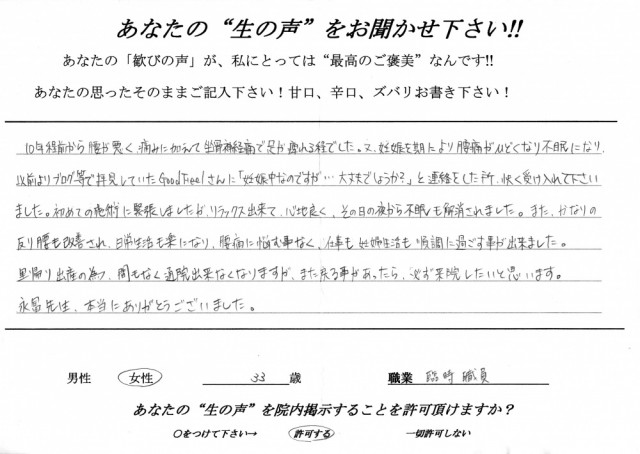 あなたの“生の声”をお聞かせ下さい!!
あなたの「歓びの声」が、私にとっては“最高のご褒美”なんです!!
あなたの思ったそのままご記入下さい！甘口、辛口、ズバリお書き下さい！
10年程前から腰が悪く、痛みに加えて坐骨神経痛で足が痺れる程でした。又、妊娠後期により腰痛がひどくなり不眠になり、
以前よりブログ等で拝見していたGoodFeelさんに「妊娠中なのですが…大丈夫でしょうか？」と連絡をした所、快く受け入れて下さい
ました。初めての施術に緊張しましたが、リラックス出来て、心地良く、その日の夜から不眠も解消されました。また、かなりの
反り腰も改善され、日常生活も楽になり、腰痛に悩む事なく、仕事も妊婦生活も順調に過ごす事が出来ました。
里帰り出産の為、間もなく通院出来なくなりますが、また戻る事があったら、必ず来院したいと思います。
永冨先生、本当にありがとうございました。
男性 女性 33 歳 職業 臨時職員
あなたの“生の声”を院内掲示することを許可頂けますか？
○をつけて下さい→ 許可する 一切許可しない